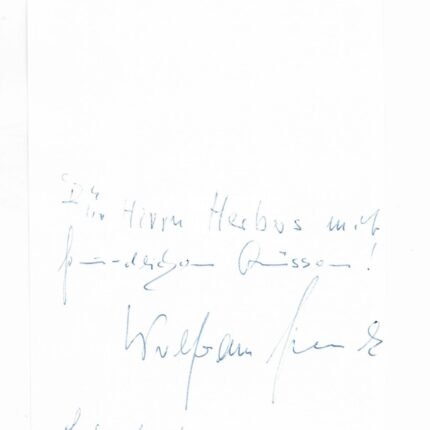 Für Herrn Herbus mit
freundlichen Grüssen!
Wolfram